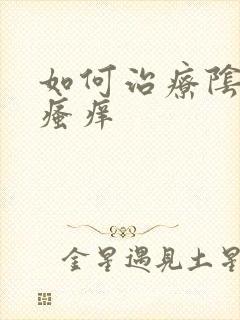 如何治療陰
瘙痒
金星遇見土星